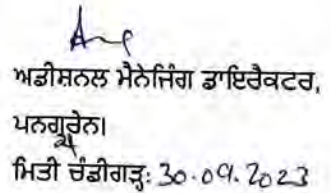 ਅਡੀਸ਼ਨਲ ਮੈਨੇਜਿੰਗ ਡਾਇਰੈਕਟਰ,
ਪਨਗ੍ਰੇਨ।
ਮਿਤੀ ਚੰਡੀਗੜ੍ਹ: 30.09.2023